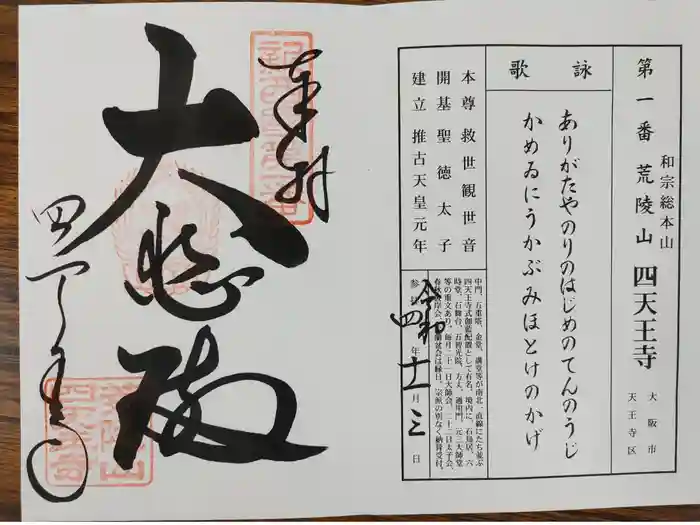 第一番 荒陵山 四天王寺
和宗総本山
大阪市
天王寺区
詠歌
ありがたやのりのはじめのてんのうじ
かめゐにうかぶみほとけのかげ
本尊 救世観世音
開基 聖徳太子
建立 推古天皇元年
中門、五重塔、金堂、講堂等が南北一直線にたち並ぶ
四天王寺式伽藍配置として有名、境内に、石鳥居、六
時堂、石舞台、五智光院、方丈、通用門、元三大師堂
等の重文あり。毎月二十一日大師会、二十二日太子会、
令和四年十一月三日
奉拝
大悲殿
四天王寺